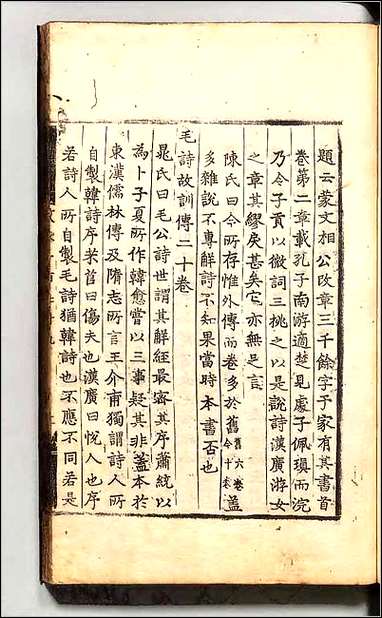 題云蒙文相公改章三千餘字于家有其書首
卷第二章載孔子南游適楚見處子佩瑱而浣
乃令子貢以微詞三挑之以是說詩漢廣游女
之章其繆戾甚矣它亦無足言
陳氏曰今所存惟外傳而卷多於舊舊六卷今十卷蓋
多雜說不專解詩不知果當時本書否也
毛詩故訓傳二十卷
晁氏曰毛公詩世謂其解經最密其序蕭統以
為卜子夏所作韓愈嘗以三事疑其非蓋本於
東漢儒林傳及隋志所言王介甫獨謂詩人所
自製韓詩序芣苢曰傷夫也漢廣曰悅人也序
若詩人所自製毛詩猶韓詩也不應不同若是